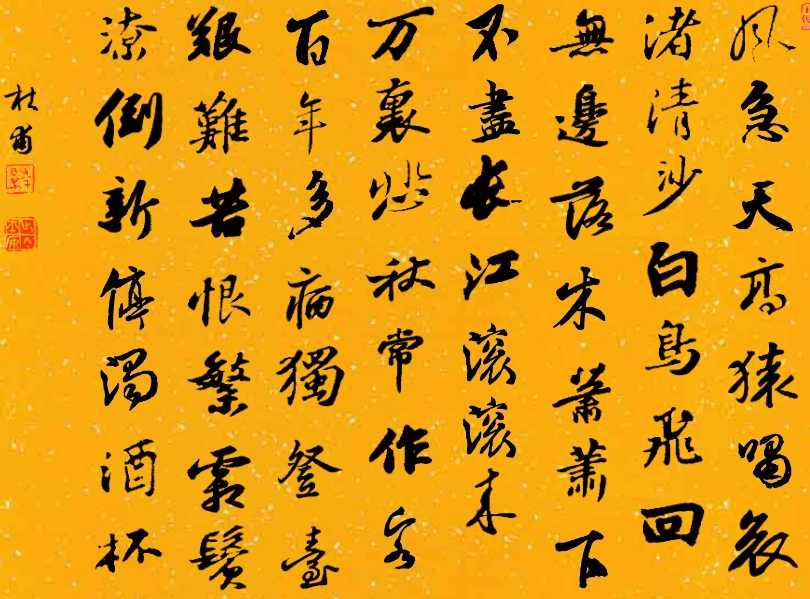 风急天高猿嘯哀
渚清沙白鳥飛回
無邊落木蕭蕭下
不盡长江滚滚来
万裏悲秋常作客
百年多病獨登臺
艱難苦恨繁霜鬢
潦倒新停濁酒杯
杜甫